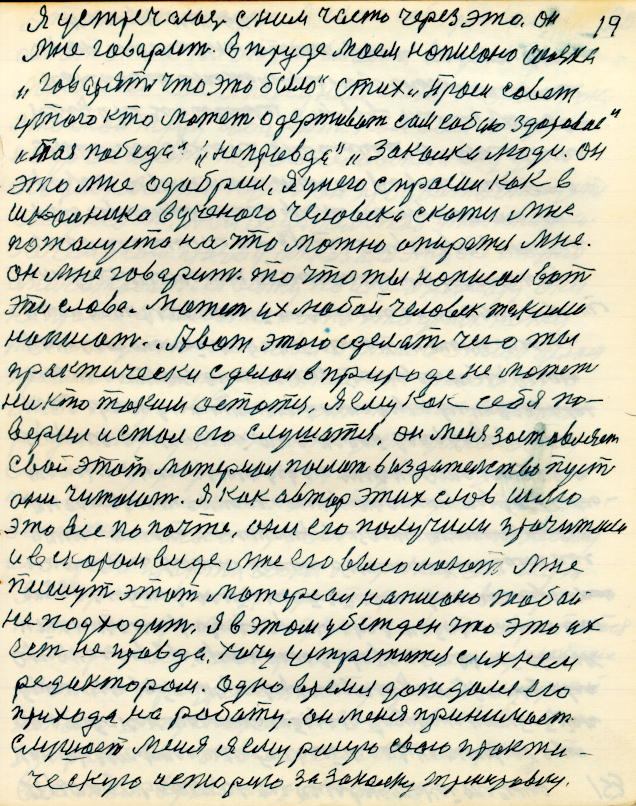 Я устречаюся с ним часто через это. он 19
мне говарит. в труде моем написано сказка
„говорят что это было" стих „Проси совет
у того кто может одерживат сам собою здоровие"
„Моя победа" „неправда" „Закалка люди. он
это мне одобрил, Я у него спросил как в
школника вученого человека скажи мне
пожалуста на что можно опиратся мне.
он мне говарит. то что ты написал вот
эти слова. Может их любой человек такими
написат. А вот этого сделат чего ты
практически сделал в природе не может
никто таким остатся, Я ему как себя по-
верил и стал его слушатся, он меня заставляет
свой этот материал послат в издателство пуст
они читают. Я как автор этих слов шлю
это все по почте, они его получили прочитали
и в скором виде мне его высолают мне
пишут этот материал написано тобой
не подходит, Я в этом убежден что это их
ест не правда, хочу устретится с ихнем
редактором. одно время дождался его
прихода на работу. он меня принимает
слушает меня я ему рисую свою практи-
ческую историю за закалку тренировку.